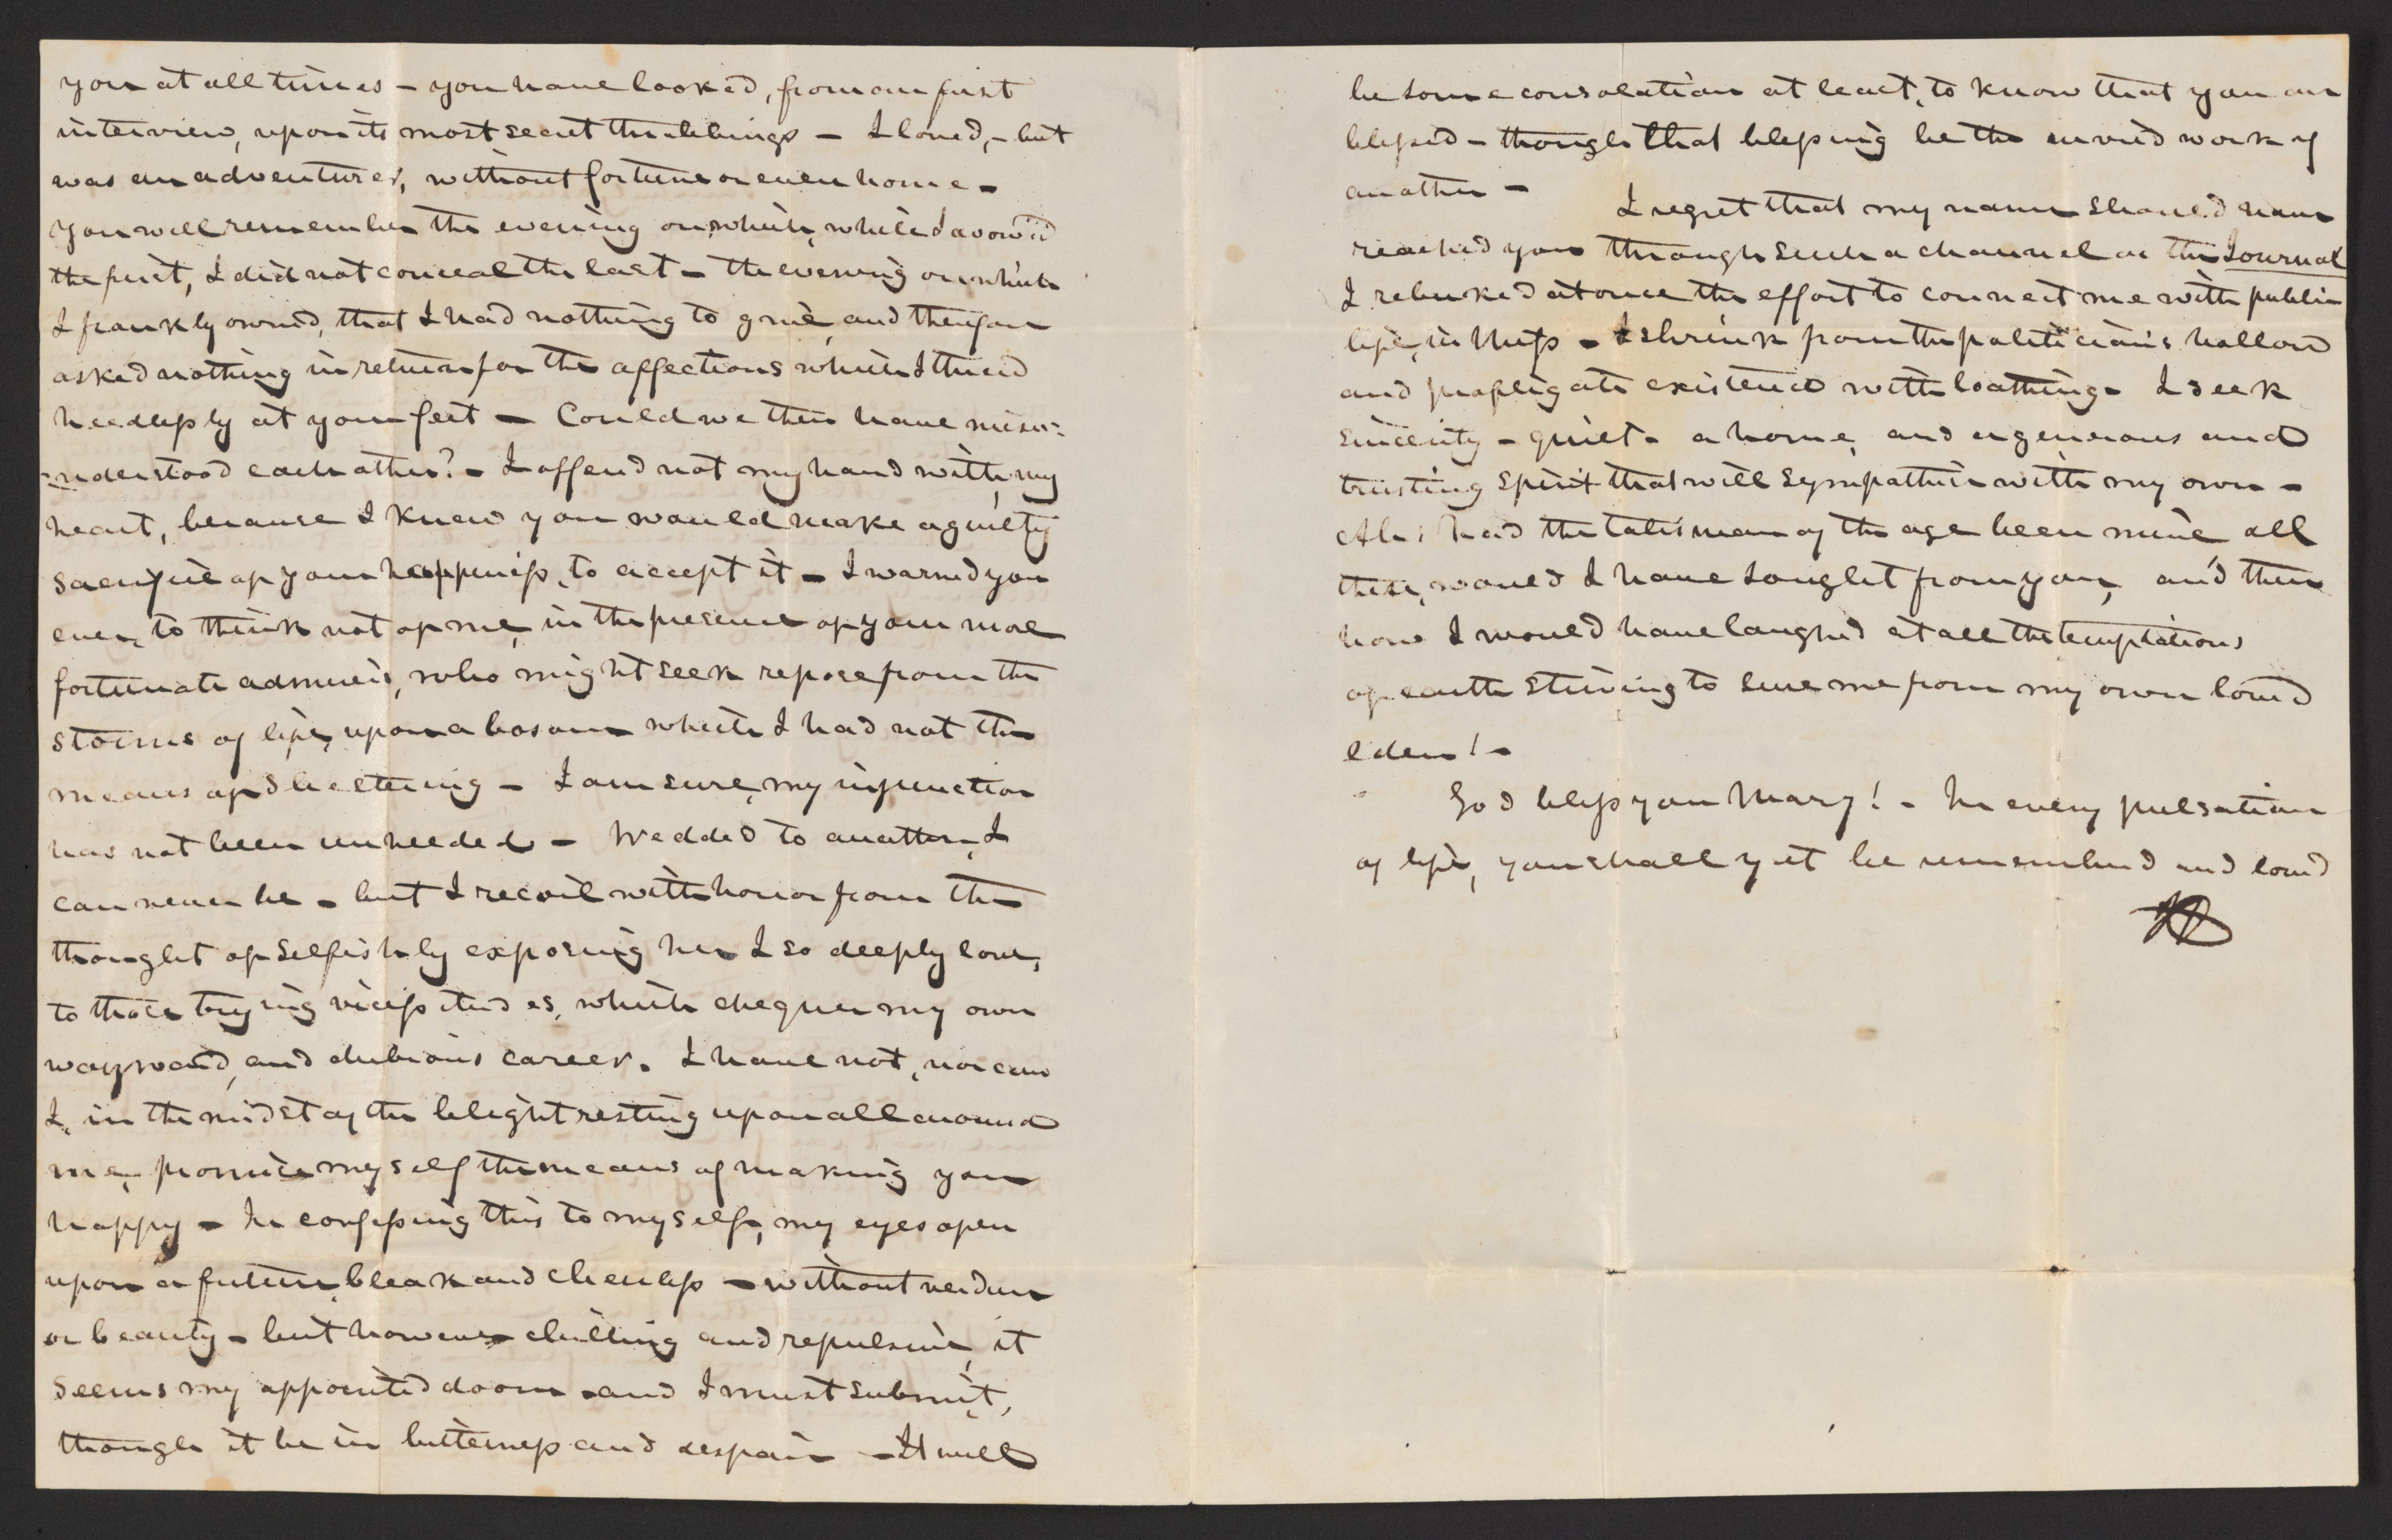 you at all times – you have looked, from our first
interview, upon its most secret throbbings – I loved, – but
was an adventurer, without fortune or even home –
You will remember the evening on which, while I avow'd
the first, I did not conceal the last – the evening on which
I frankly owned, that I had nothing to give, and therefore
asked nothing in return for the affections which I threw
heedlessly at your feet – Could we then have misu-
-nderstood each other? – I offered not my hand with my
heart, because I knew you would make a guilty
sacrifice of your happiness, to accept it – I warned you
even, to think not of me, in the presence of your more
fortunate admirers, who might seek repose from the
storms of life, upon a bosom which I had not the
means of sheltering – I am sure, my injunction
has not been unheeded – Wedded to another, I
can never be – but I recoil with horror from the
thought of selfishly exposing her I so deeply love,
to those trying vicissitudes, which chequer my own
wayward, and dubious career. I have not, nor can
I, in the midst of the blight resting upon all around
me, promise myself the means of making you
happy – In confessing this to myself, my eyes open
upon a future, bleak and cheerless – without verdure
or beauty – but however chilling and repulsive, it
seems my appointed doom – and I must submit,
though it be in bitterness and despair – It will
be some consolation at least, to know that you are
blessed – though that blessing be the envied work of
another –
I regret that my name should have
reached you through such a channel as the Journal
I rebuked at once the effort to connect me with public
life, in Miss – I shrink from the politician's hollow
and profligate existence with loathing – I seek
sincerity – quiet – a home, and a generous and
trusting spirit that will sympathise with my own –
Ah! had the talisman of the age been mine all
these, would I have sought from you, and then
how I would have laughed at all the temptations
of earth striving to lure me from my own loved
eden! –
God bless you Mary! – In every pulsation
of life, you shall yet be remembered and loved